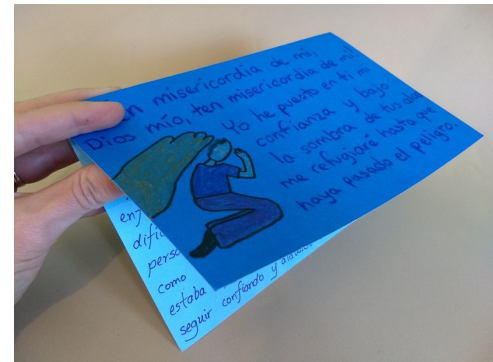 en misericordia de mí,
Dios mío, ten misericordia de mí!
Yo he puesto en ti mi
confianza y bajo
la sombra de tus alas
me refugiaré hasta que
haya pasado el peligro.
como
estaba
seguir confiando y